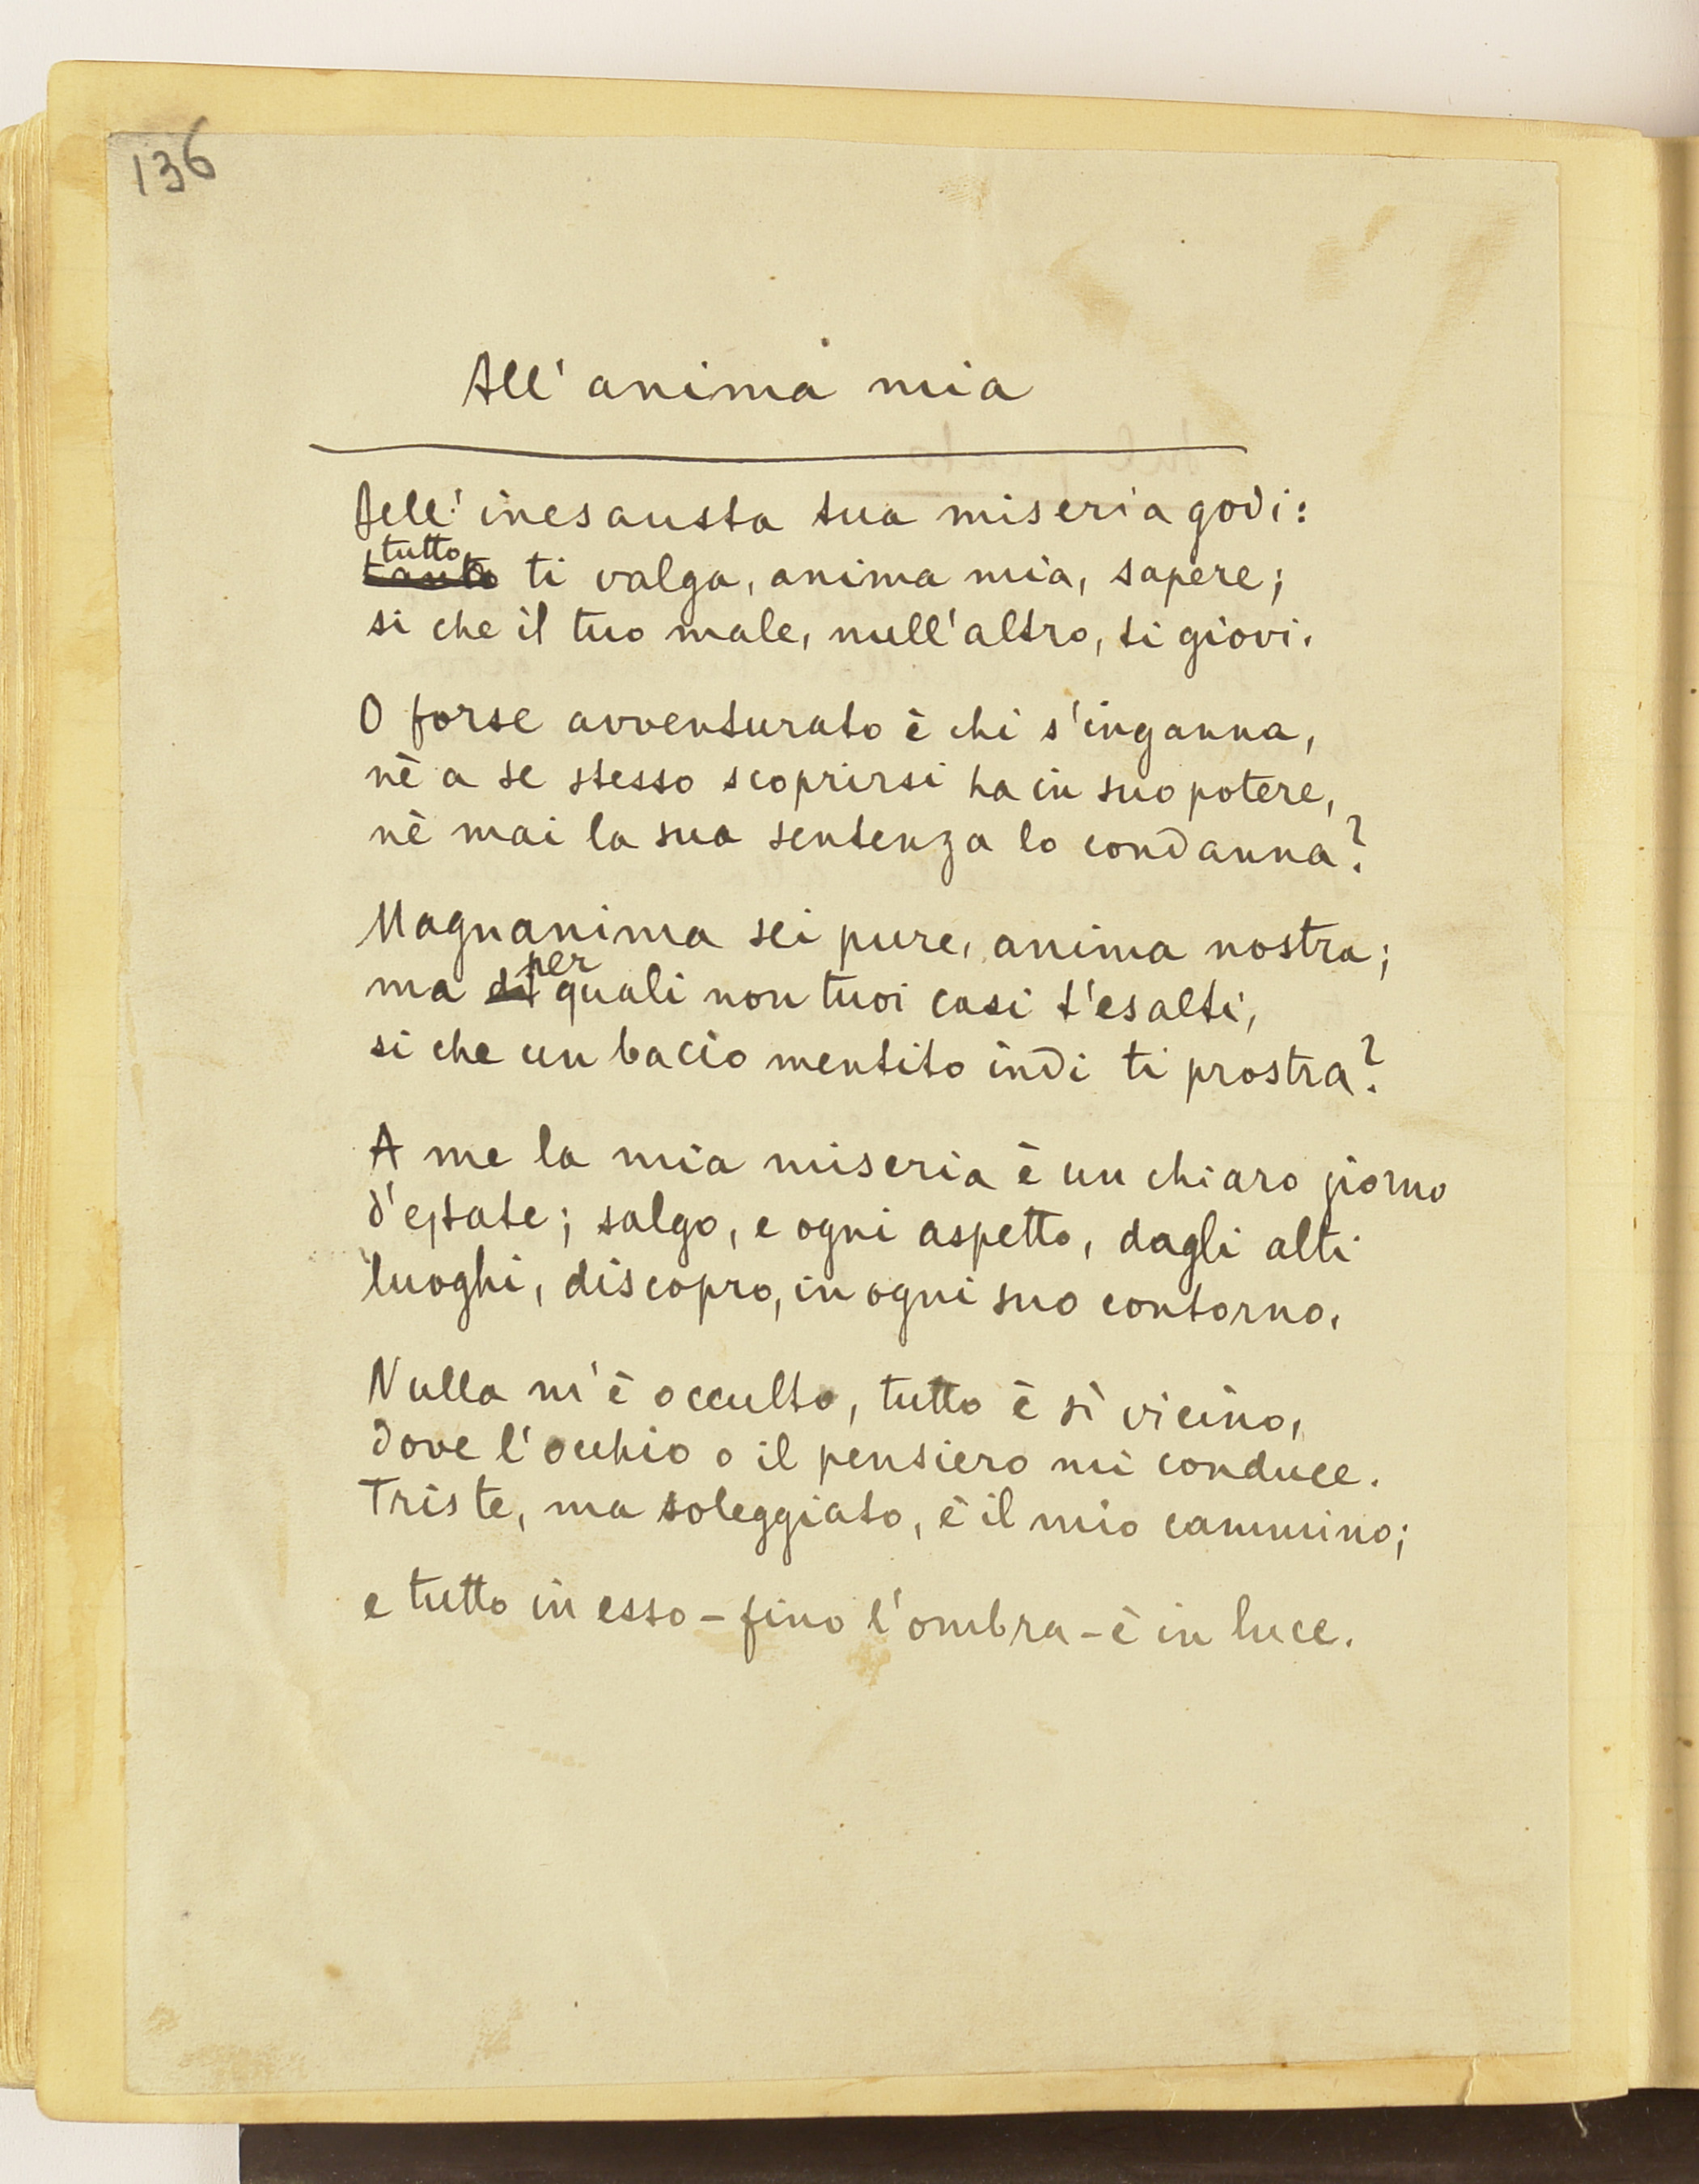 136
All'anima mia
Dell'inesausta tua miseria godi:
tutto
tanto ti valga, anima mia, sapere;
si che il tuo male, null'altro, ti giovi.
O forse avventurato è chi s'inganna,
nè a se stesso scoprirsi ha in suo potere,
nè mai la sua sentenza lo condanna?
Magnanima sei pure, anima nostra;
per
ma di quali non tuoi casi t'esalti,
si che un bacio mentito indi ti prostra?
A me la mia miseria è un chiaro giorno
d'estate; salgo, e ogni aspetto, dagli alti
luoghi, discopro, in ogni suo contorno.
Nulla m'è occulto, tutto è sì vicino,
dove l'occhio o il pensiero mi conduce.
Triste, ma soleggiato, è il mio cammino;
e tutto in esso - fino l'ombra - è in luce.